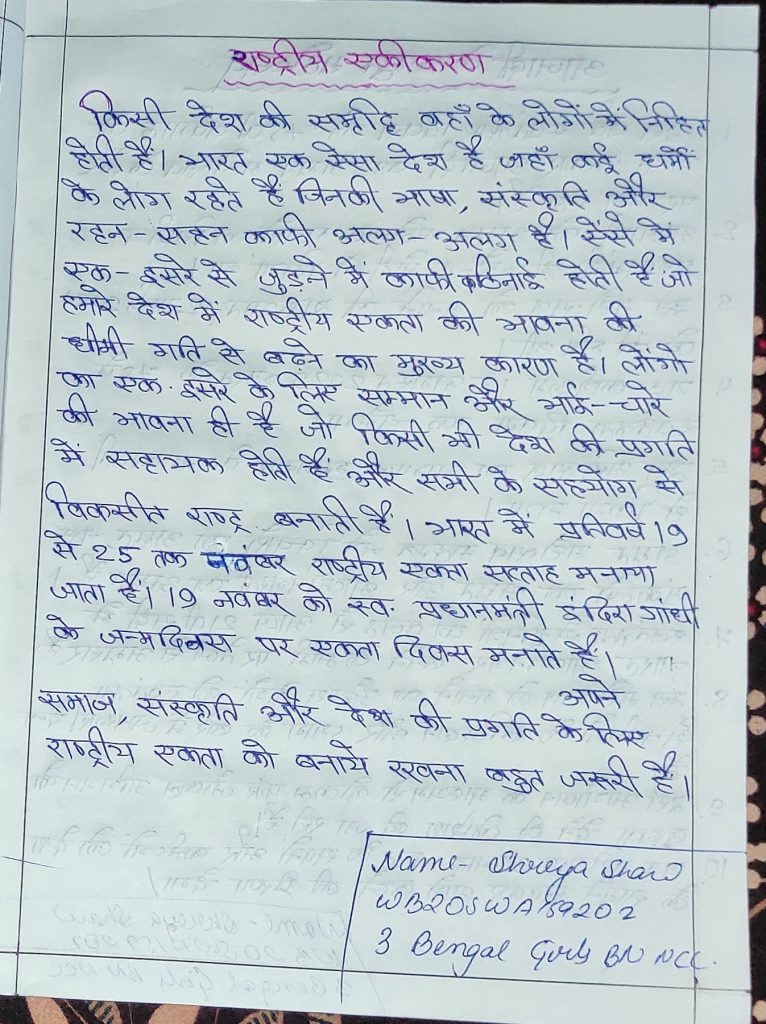 राष्ट्रीय एकीकरण
किसी देश की समृद्धि वहाँ के लोगों में निहित
होती हैं। भारत एक ऐसा देश है जहाँ कई धर्मों
के लोग रहते हैं जिनकी भाषा, संस्कृति और
रहन-सहन काफी अलग-अलग है। ऐंसे में
एक-दूसरे से जुड़ने में काफी कठिनाई होती है जो
हमारे देश में राष्ट्रीय एकता की भावना की
धीमी गति से बढ़ने का मुख्य कारण है। लोंगो
का एक-दूसरे के लिए सम्मान और भाई-चारे
की भावना ही है जो किसी भी देश की प्रगति
में सहायक होती हैं और सभी के सहयोग से
विकसीत राष्ट्र बनाती हैं। भारत में प्रतिवर्ष 19
से 25 तक नवंबर राष्ट्रीय एकता सप्ताह मनाया
जाता हैं। 19 नवंबर को स्व. प्रधानमंत्री इंदिरा गांधी
के जन्मदिवस पर एकता दिवस मनाते हैं।
अपने
समाज, संस्कृति और देश की प्रगति के लिए
राष्ट्रीय एकता को बनाये रखना बहुत जरूरी है।
Name- Shreya Shaw
WB20SWA159202
3 Bengal Girls BN NCC.